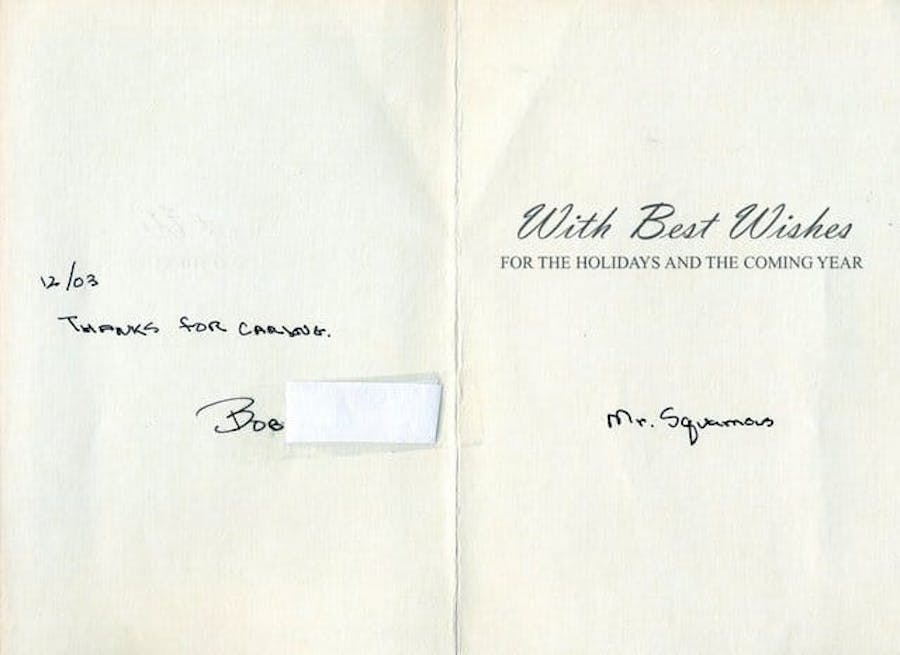 12/03
THANKS FOR CARING.
BOB
With Best Wishes
FOR THE HOLIDAYS AND THE COMING YEAR
Mr. Squamous